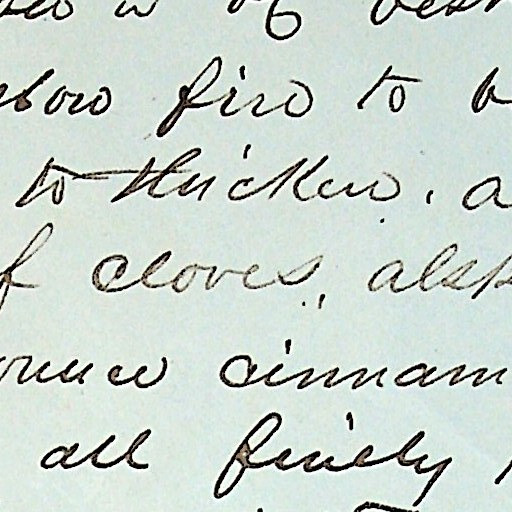 of best
slow fire to b
to thicken, a
f cloves, alsp
ounce cinnam
all finely